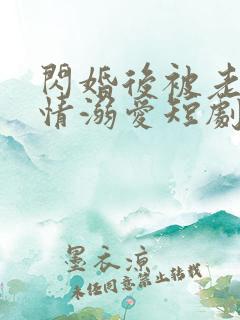 閃婚後被老
情溺愛短劇
墨衣涼
未經同意禁止轉載